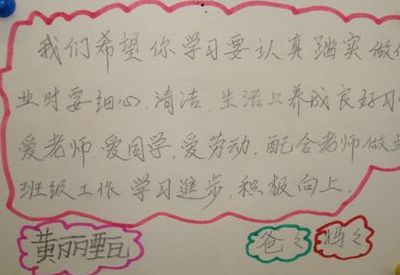 我们希望你学习要认真踏实做
业时要细心.清洁.生活上养成良好习
爱老师.爱同学.爱劳动.配合老师做
班级工作.学习進步.积极向上.
黄丽
爸々 妈々